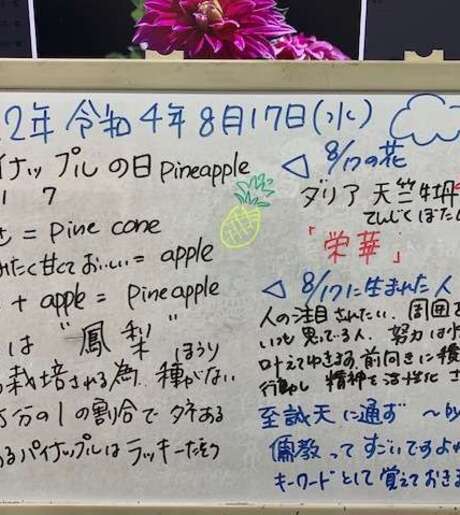 2年 令和4年 8月17日(水)
イナップルの日 pineapple
1 7
= pine cone
みたく甘くておいしい = apple
+ apple = pineapple
は "鳳梨" ほうり
栽培される為、種がない
分の1の割合でタネある
あるパイナップルはラッキーだそう
◁ 8/17の花
ダリア 天竺牡丹
てんじくぼたん
「栄華」
◁ 8/17に生まれた人
人の注目されたい、周囲を
いつも思っている人、努力は
叶えてゆきます 前向きに積
行動し 精神を活性化さ
至誠天に通ず 〜by
儒教ってすごいですよね
キーワードとして覚えておきま